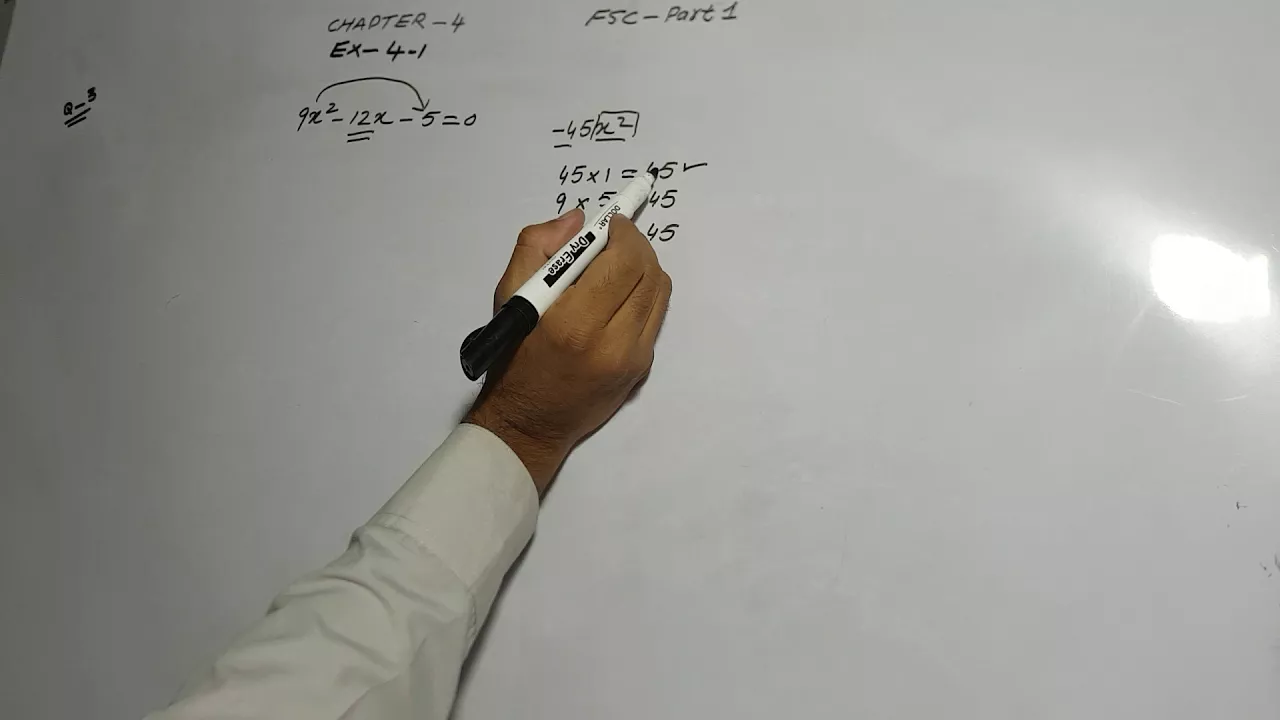 CHAPTER-4
FSC-Part 1
EX-4-1
Q-3
9x²-12x-5=0
-45x²
45x1=45✓
9x5 45
45
DOLLAR
Dry Erase